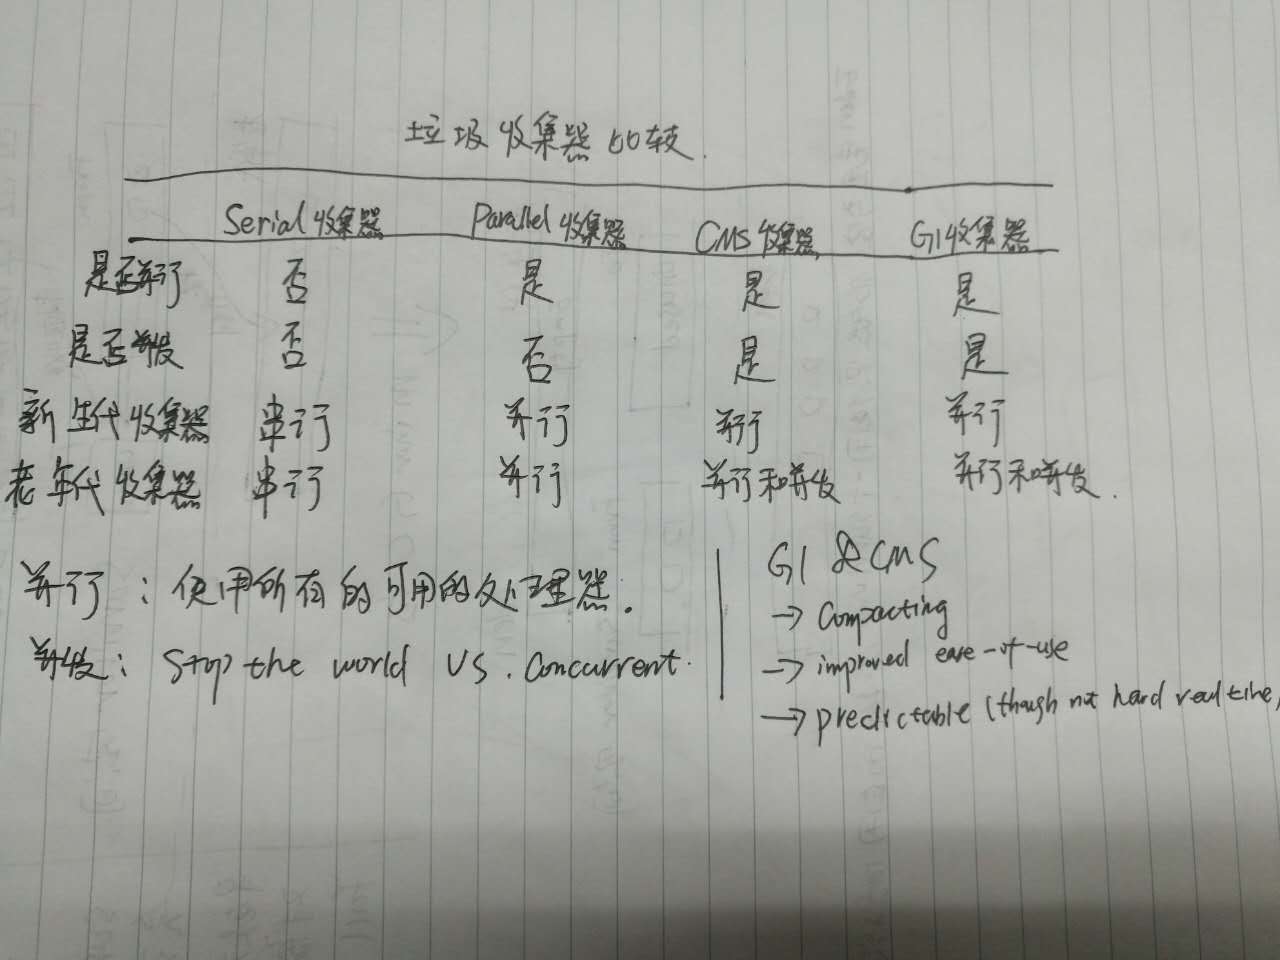 垃圾收集器比较.
Serial收集器 Parallel收集器 CMS收集器 G1收集器
是否并行 否 是 是 是
是否并发 否 否 是 是
新生代收集器 串行 并行 并行 并行
老年代收集器 串行 并行 并行和并发 并行和并发.
并行：使用所有的可用的处理器.
并发：Stop the world VS. Concurrent.
G1 及 CMS
→ Compacting
→ improved ease-of-use
→ predictable (though not hard realtime)